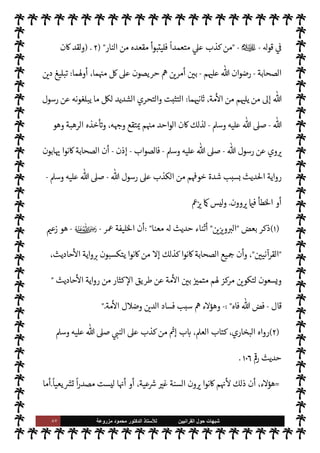 في قوله - ﷺ - "من كذب علي متعمداً فليتبوأ مقعده من النار" (٢). (ولقد كان
الصحابة - رضوان الله عليهم - بين أمرين هم حريصون على كل منهما، أولهما: تبليغ دين
الله إلى من يليهم من الأمة، ثانيهما: التثبت والتحري الشديد لكل ما يبلغونه عن رسول
الله - صلى الله عليه وسلم - لذلك كان الواحد منهم يمتقع وجهه، وتأخذه الرهبة وهو
يروي عن رسول الله - صلى الله عليه وسلم - فالصواب - إذن - أن الصحابة كانوا يهابون
رواية الحديث بسبب شدة خوفهم من الكذب على رسول الله - صلى الله عليه وسلم -
أو الخطأ فيما يروون. وليس كما يزعم
(١) ذكر بعض "البرويزين" أثناء حديث له معنا" :أن الخليفة عمر - ﷺ - هو زعيم
"القرآنيين"، وأن جميع الصحابة كانوا كذلك إلا من كانوا يتكسبون برواية الأحاديث،
ويسعون لتكوين مركز لهم متميز بين الأمة عن طريق الإكثار من رواية الأحاديث "
قال - فض الله فاه" :- وهؤلاء هم سبب فساد الدين وضلال الأمة".
(٢) رواه البخاري، كتاب العلم، باب إثم من كذب على النبي صلى الله عليه وسلم
حديث رقم ١٠٦ .
=هؤلاء، أن ذلك لأنهم كانوا يرون السنة غير شرعية، أو أنها ليست مصدراً تشريعياً. أما
شبهات حول القرآنيين للأستاذ الدكتور محمود مزروعة ٥٢